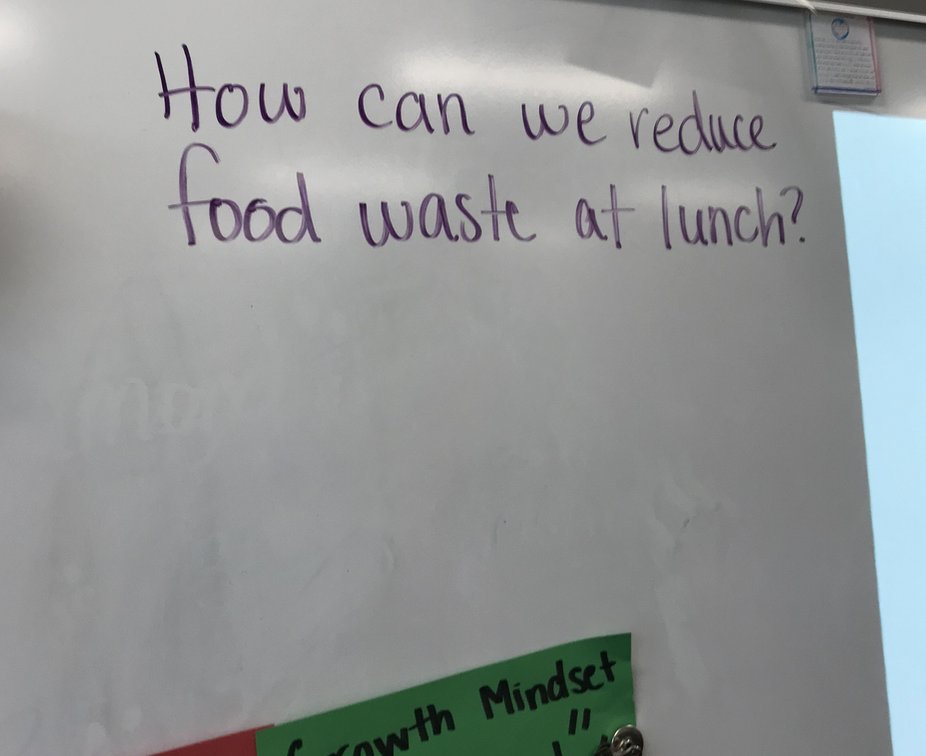 How can we reduce
food waste at lunch?
Growth Mindset
"